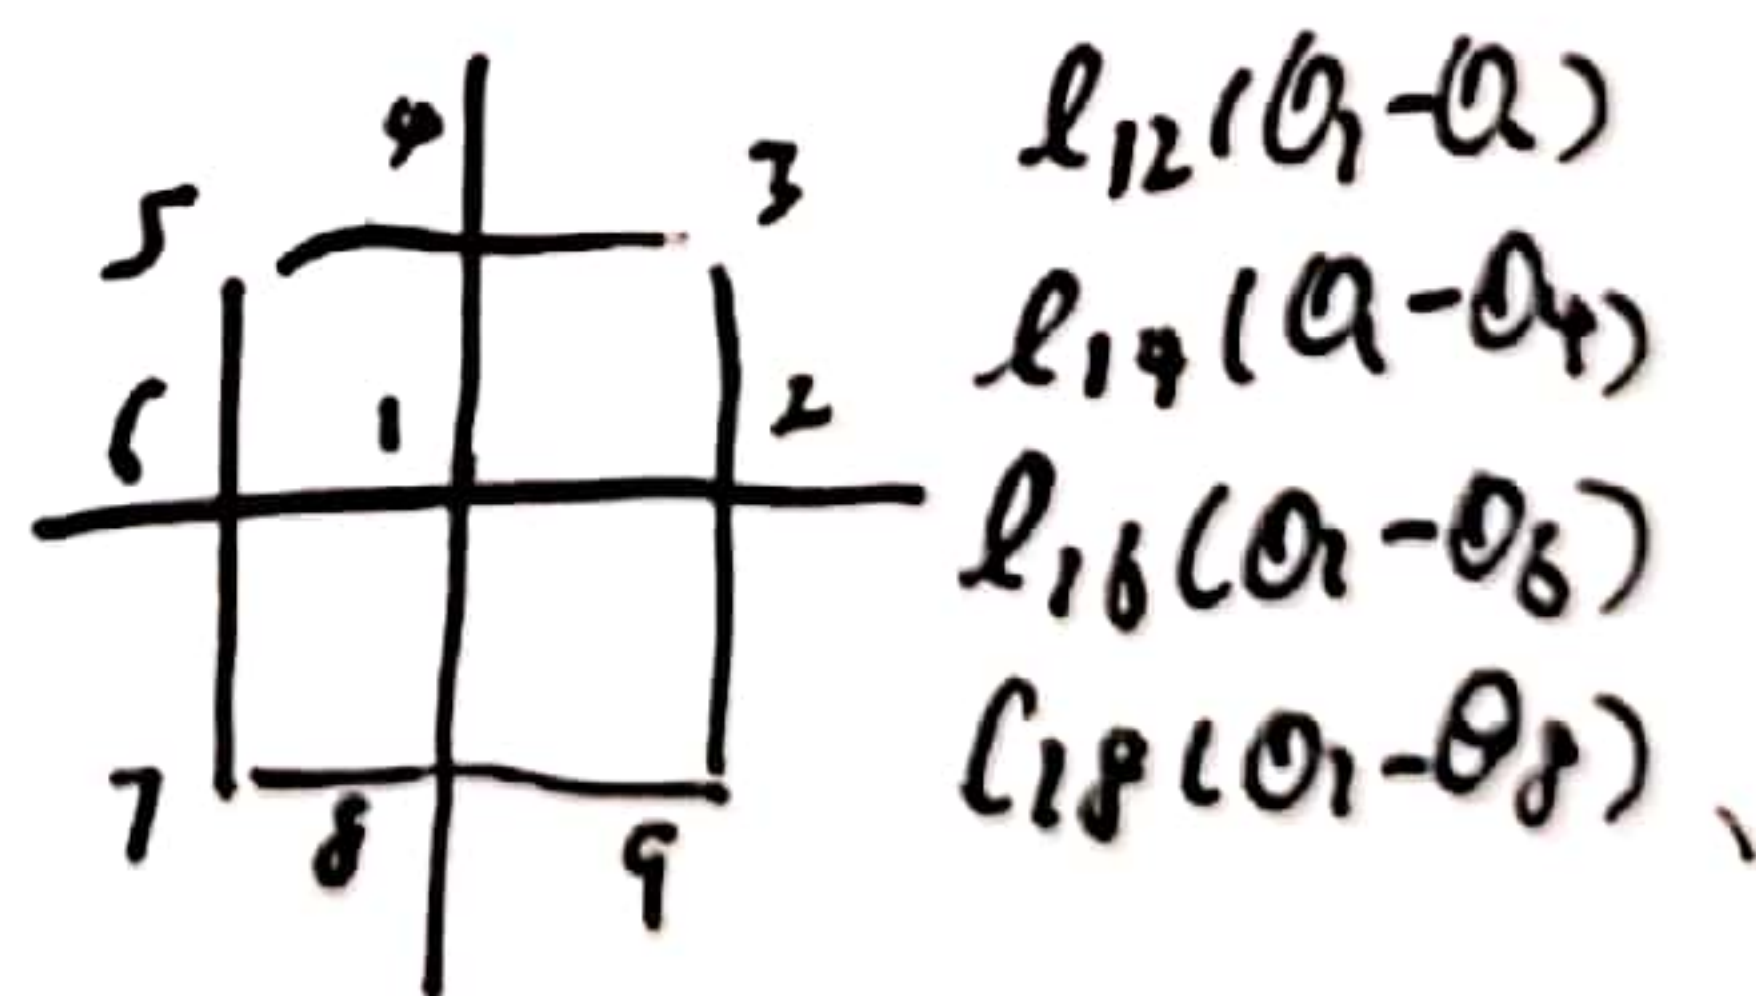 4
3
5
6
1
2
7
8
9
l₁₂(θ₁-θ)
l₁₄(θ-θ₄)
l₁₆(θ₁-θ₆)
l₁₈(θ₁-θ₈)、